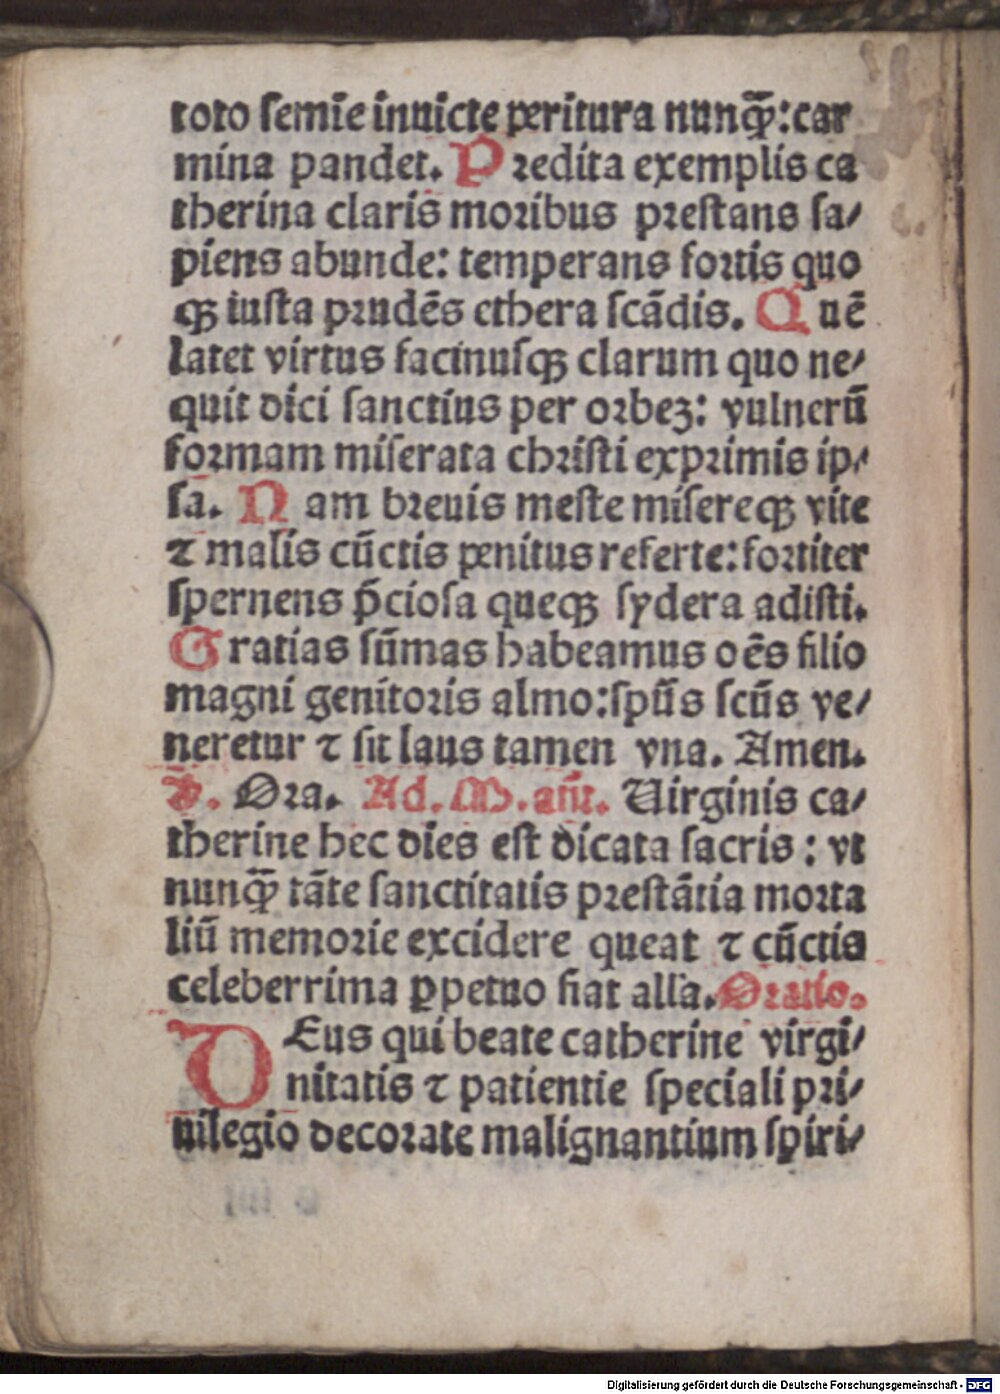 toto ſemīe inuicte peritura nunꝙ̄: car
mina pandet. Predita exemplis ca
therina claris moribus preſtans ſa/
piens abunde: temperans fortis quo
qꝫ iuſta prudēs ethera ſcādis. Quē
latet virtus facinuſqꝫ clarum quo ne/
quit dici ſanctius per orbeꝫ: vulnerū
formam miſerata chriſti exprimis ip/
ſa. Nam breuis meſte miſereqꝫ vite
⁊ malis cūctis penitus referte: fortiter
ſpernens p̄cioſa queqꝫ ſydera adiſti.
Gratias ſūmas habeamus oēs filio
magni genitoris almo: ſpūs ſcūs ve/
neretur ⁊ ſit laus tamen vna. Amen.
V. Ora. Ad. M. añ. Virginis ca/
therine hec dies eſt dicata ſacris: vt
nunꝙ̄ tāte ſanctitatis preſtātia morta
liū memorie excidere queat ⁊ cūctis
celeberrima ꝑpetuo fiat alľa. Oratio.
DEus qui beate catherine virgi/
nitatis ⁊ patientie ſpeciali pri/
uilegio decorate malignantium ſpiri/
Digitalisierung gefördert durch die Deutsche Forschungsgemeinschaft - DFG